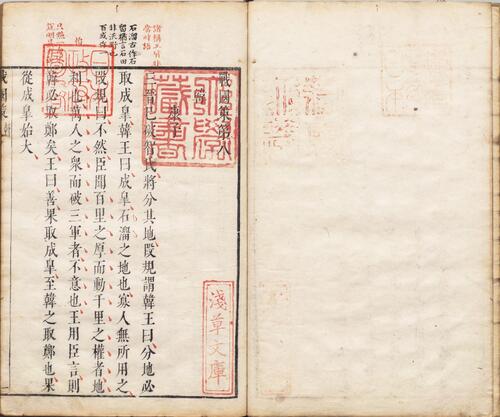 戰國策第八
韓
康子
三晉已破智氏將分其地段規謂韓王曰分地必
取成皐韓王曰成皐石溜之地也寡人無所用之
段規曰不然臣聞百里之厚而動千里之權者地
利也萬人之衆而破三軍者不意也王用臣言則
韓必取鄭矣王曰善果取成皐至韓之取鄭也果
從成皐始大
淺草文庫
藏書
石溜古作石